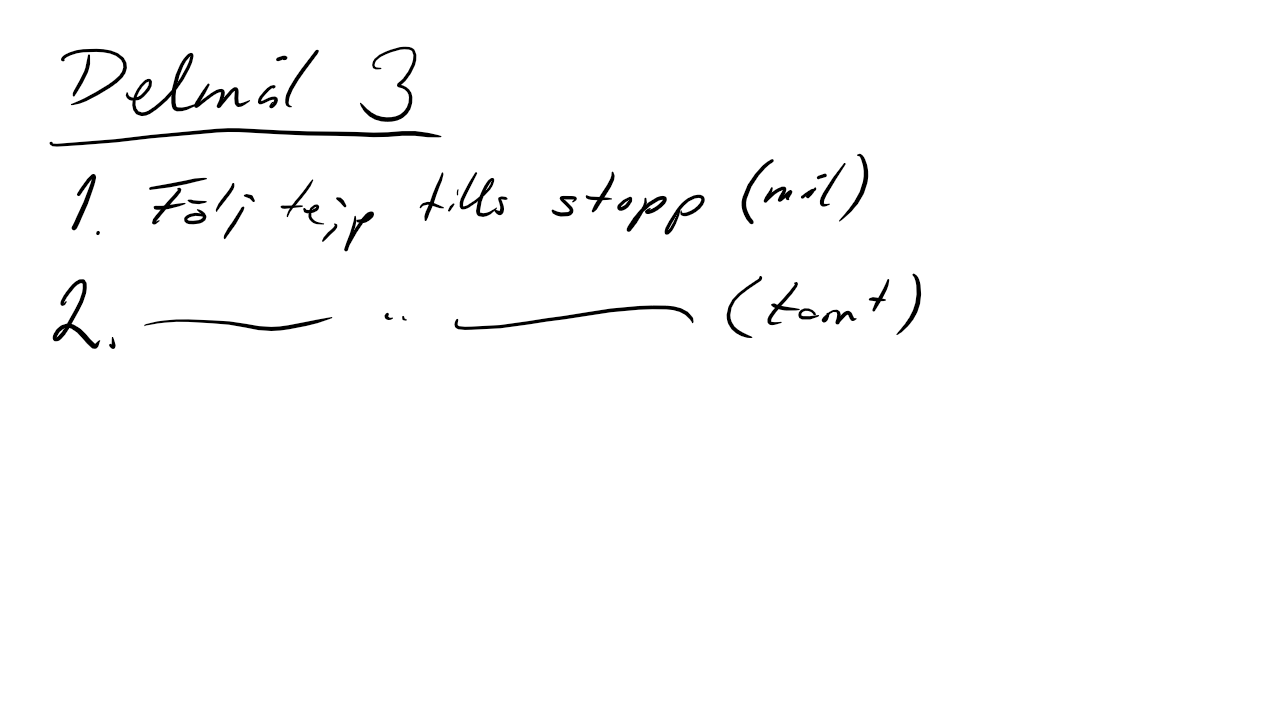 Delmål 3
1. Följ tejp tills stopp (mål)
2. —— " —— (tomt)